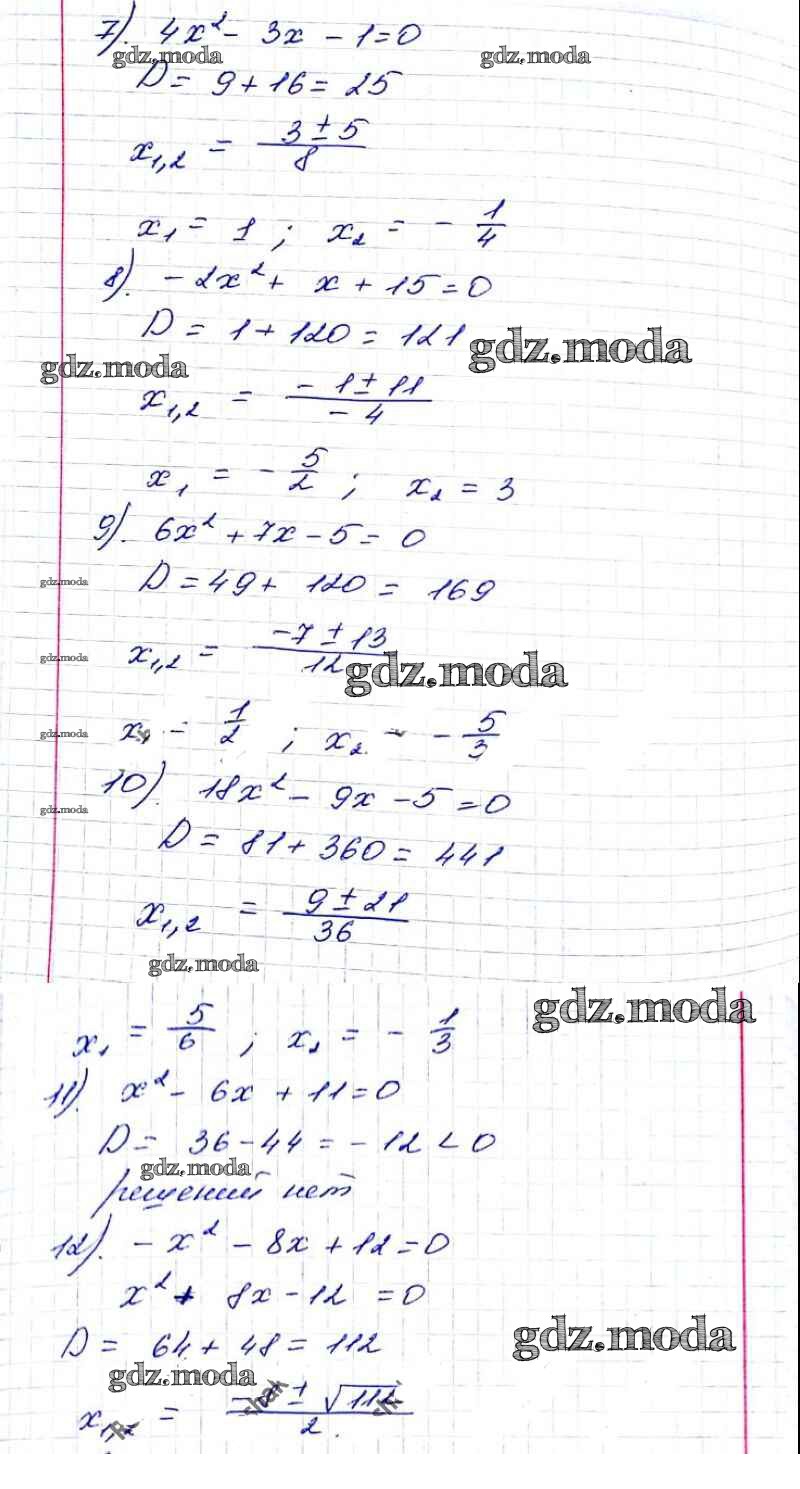 7). 4x² - 3x - 1 = 0
gdz.moda gdz.moda
D = 9 + 16 = 25
x₁,₂ = (3 ± 5)/8
x₁ = 1 ; x₂ = - 1/4
8). - 2x² + x + 15 = 0
D = 1 + 120 = 121
gdz.moda gdz.moda
x₁,₂ = (- 1 ± 11)/(- 4)
x₁ = - 5/2 ; x₂ = 3
9). 6x² + 7x - 5 = 0
gdz.moda
D = 49 + 120 = 169
gdz.moda
x₁,₂ = (-7 ± 13)/12
gdz.moda
gdz.moda
x₁ = 1/2 ; x₂ = - 5/3
10). 18x² - 9x - 5 = 0
gdz.moda
D = 81 + 360 = 441
x₁,₂ = (9 ± 21)/36
gdz.moda
gdz.moda
x₁ = 5/6 ; x₂ = - 1/3
11). x² - 6x + 11 = 0
D = 36 - 44 = - 12 < 0
gdz.moda
решений нет
12). - x² - 8x + 12 = 0
x² + 8x - 12 = 0
D = 64 + 48 = 112
gdz.moda
gdz.moda
x₁,₂ = (-8 ± √112)/2.